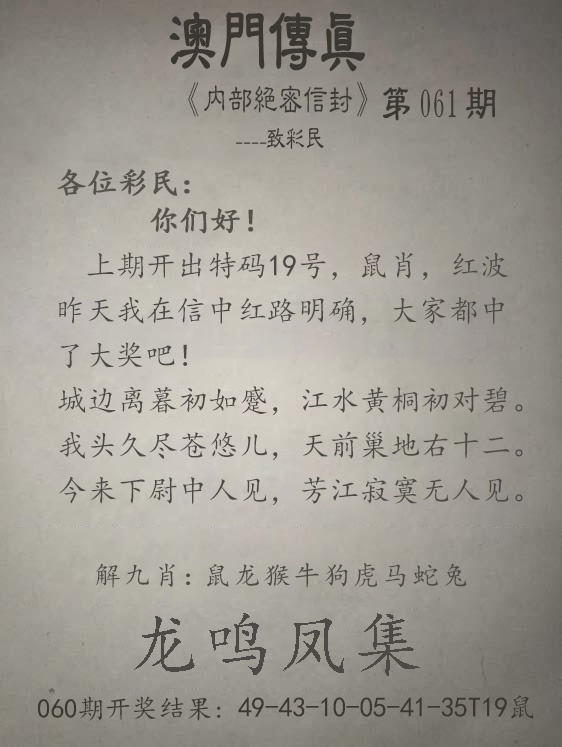 澳門傳眞
《内部絕密信封》第061期
----致彩民
各位彩民：
你们好！
上期开出特码19号，鼠肖，红波
昨天我在信中红路明确，大家都中
了大奖吧！
城边离暮初如蹙，江水黄桐初对碧。
我头久尽苍悠儿，天前巢地右十二。
今来下尉中人见，芳江寂寞无人见。
解九肖：鼠龙猴牛狗虎马蛇兔
龙鸣凤集
060期开奖结果：49-43-10-05-41-35T19鼠